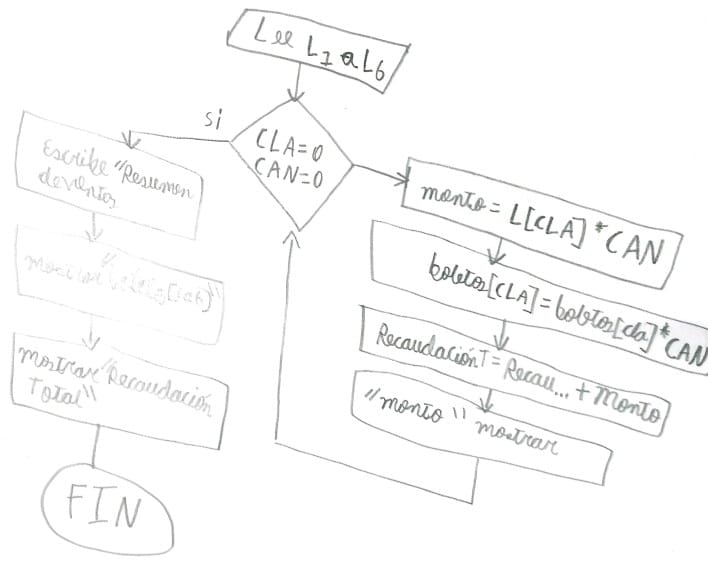 Lee L1 a L6
CLA=0
CAN=0
si
Escribe "Resumen
de ventas
mostrar
mostrar "Recaudación
Total"
FIN
monto = L[CLA] * CAN
boletos[CLA] = boletos[cla] * CAN
Recaudación T = Recau... + Monto
"monto" mostrar